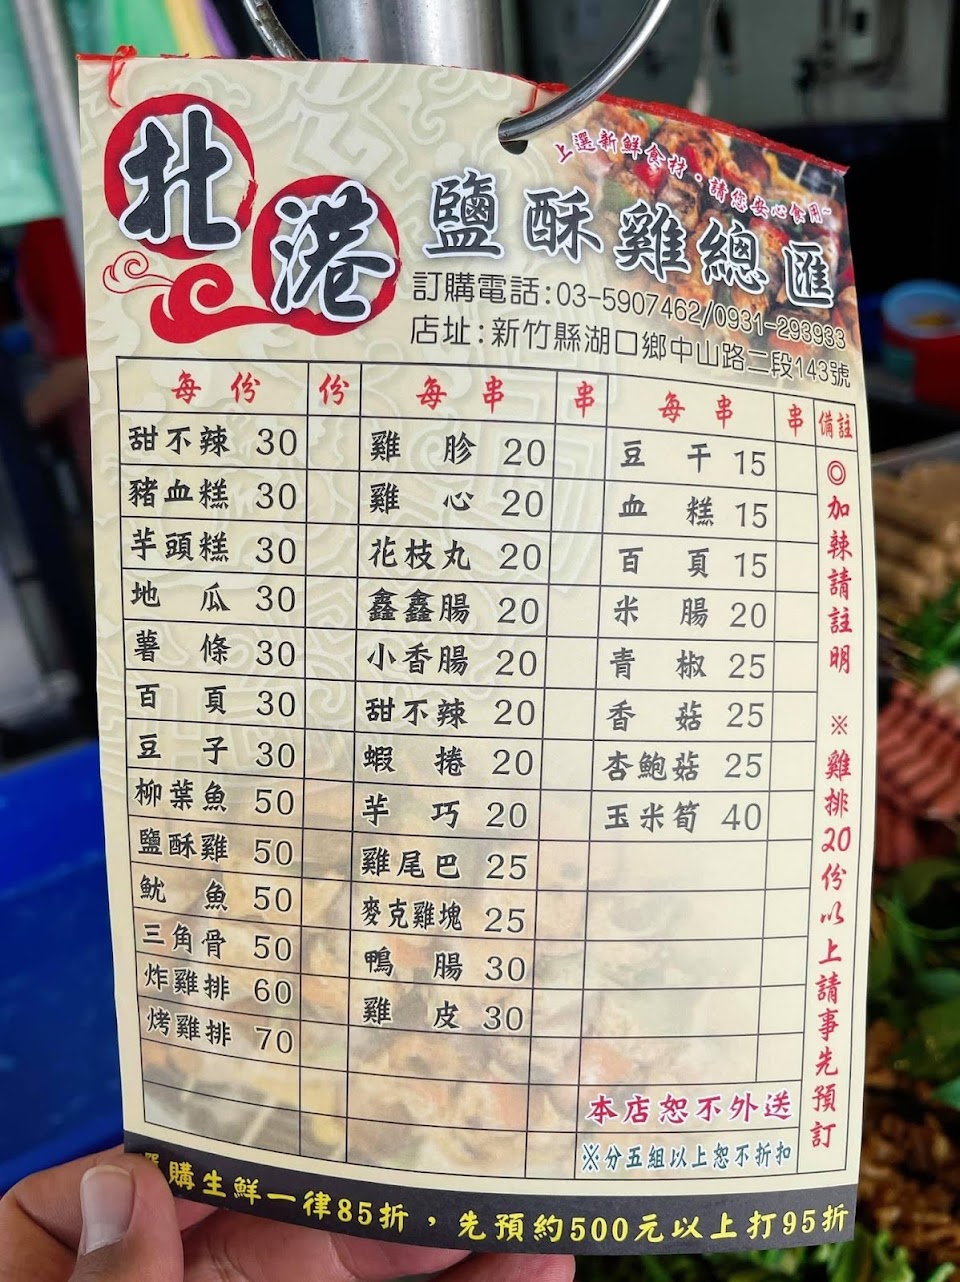 上選新鮮食材，請您安心食用~
北港鹽酥雞總匯
訂購電話:03-5907462/0931-293933
店址:新竹縣湖口鄉中山路二段143號
每份 份 每串 串 每串 串 備註
甜不辣 30 雞胗 20 豆干 15
豬血糕 30 雞心 20 血糕 15
芋頭糕 30 花枝丸 20 百頁 15
地瓜 30 鑫鑫腸 20 米腸 20
薯條 30 小香腸 20 青椒 25
百頁 30 甜不辣 20 香菇 25
豆子 30 蝦捲 20 杏鮑菇 25
柳葉魚 50 芋巧 20 玉米筍 40
鹽酥雞 50 雞尾巴 25
魷魚 50 麥克雞塊 25
三角骨 50 鴨腸 30
炸雞排 60 雞皮 30
烤雞排 70
◎加辣請註明
※雞排20份以上請事先預訂
本店恕不外送
※分五組以上恕不折扣
購生鮮一律85折，先預約500元以上打95折